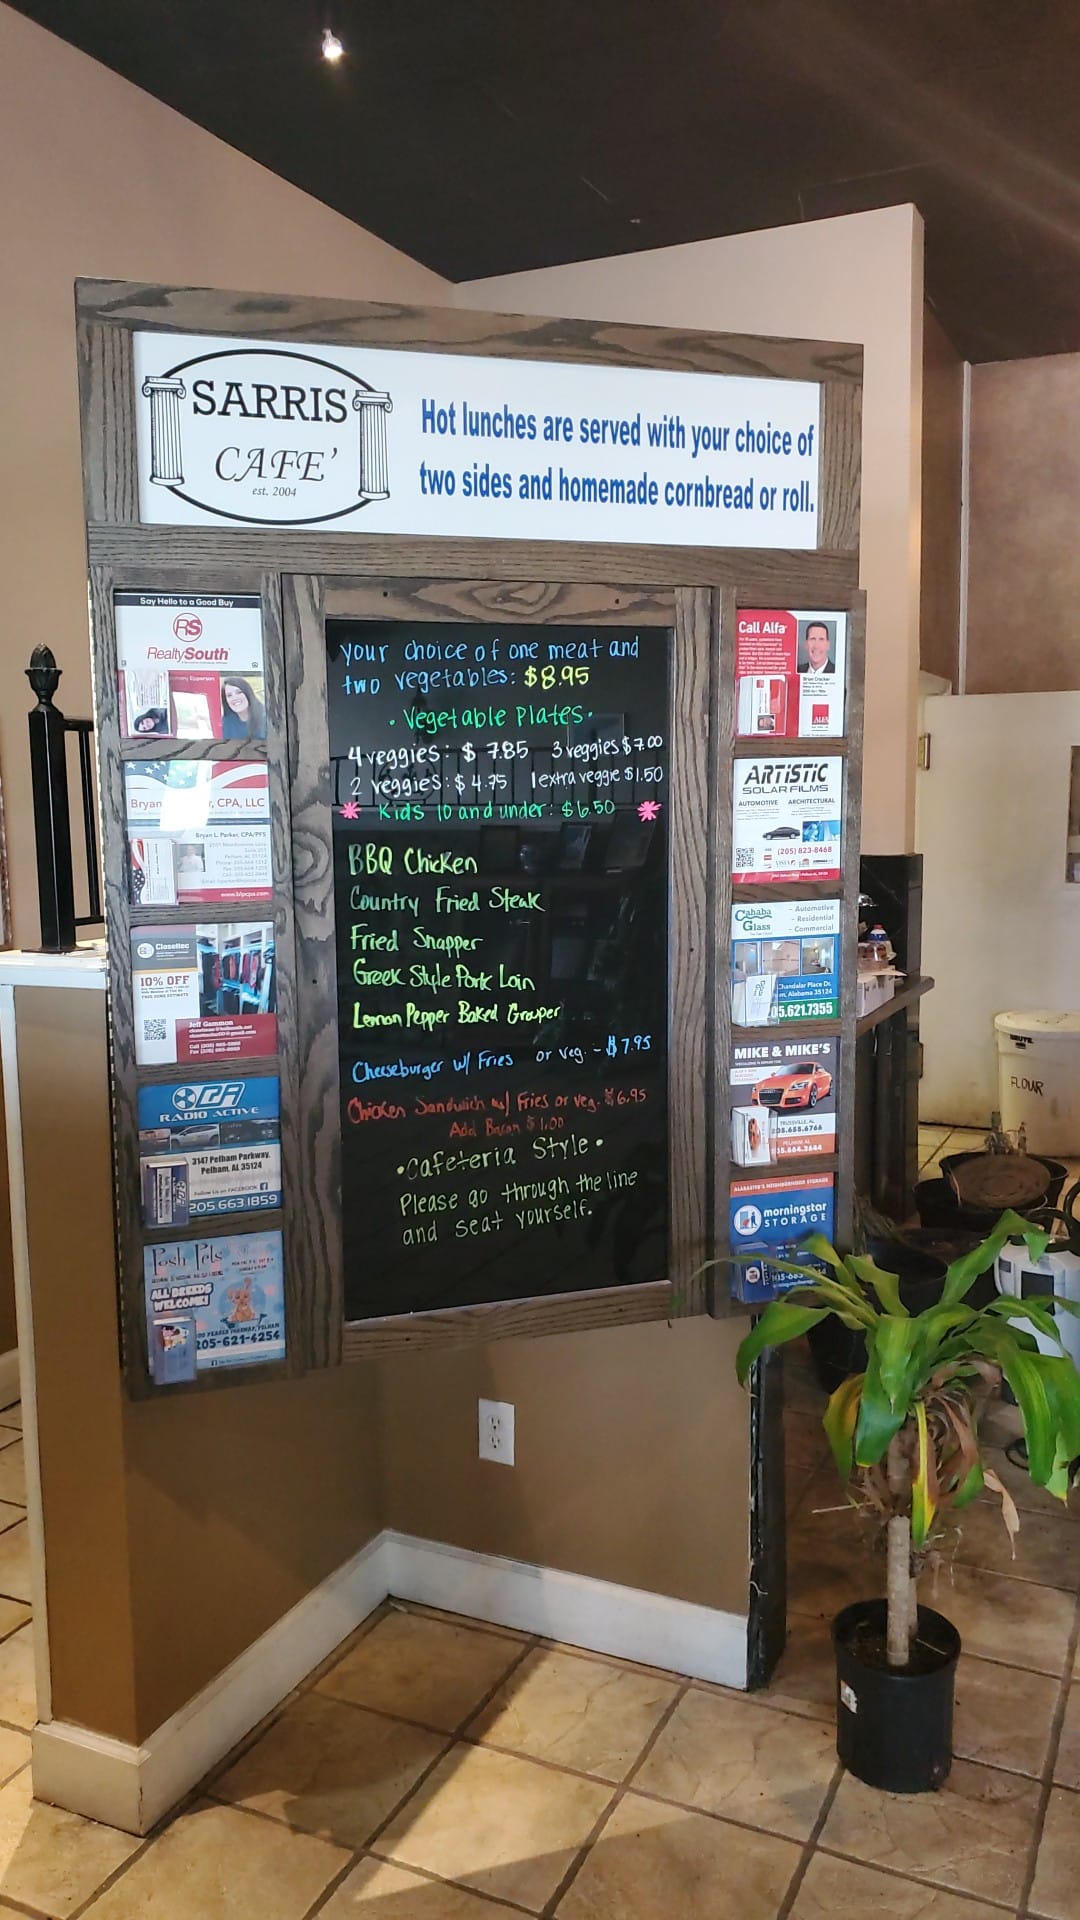 SARRIS
CAFE'
est. 2004
Hot lunches are served with your choice of
two sides and homemade cornbread or roll.
Say Hello to a Good Buy
RS
RealtySouth
Epperson
Bryan
CPA, LLC
Bryan L. Parker, CPA/PFS
Closettec
10% OFF
Jeff Gammon
RADIO ACTIVE
3147 Pelham Parkway.
Pelham, AL 35124
Follow Us on FACEBOOK
205 663 1859
Posh Pets
ALL BREEDS
WELCOME!
205-621-4254
your choice of one meat and
two vegetables: $8.95
• Vegetable Plates •
4 veggies: $ 7.85 3 veggies $7.00
2 veggies: $4.95 1 extra veggie $1.50
Kids 10 and under: $6.50
BBQ Chicken
Country Fried Steak
Fried Snapper
Greek Style Pork Loin
Lemon Pepper Baked Grouper
Cheeseburger w/ Fries or veg. - $7.95
Chicken Sandwich w/ Fries or veg. $6.95
Add Bacon $1.00
• Cafeteria Style •
Please go through the line
and seat yourself.
Call Alfa
ALFA
ARTISTIC
SOLAR FILMS
AUTOMOTIVE ARCHITECTURAL
(205) 823-8468
Cahaba
Glass
- Automotive
- Residential
- Commercial
Chandalar Place Dr.
Alabama 35124
05.621.7355
MIKE & MIKE'S
TRUSSVILLE, AL
PELHAM, AL
ALABASTER'S NEIGHBORHOOD STORAGE
morningstar
STORAGE
BRUTE
FLOUR